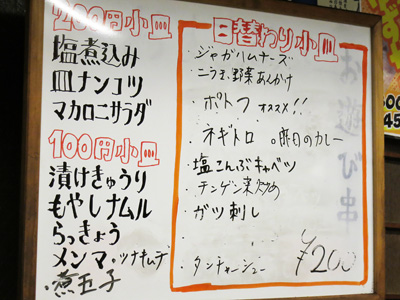 200円小皿
塩煮込み
皿ナンコツ
マカロニサラダ
100円小皿
漬けきゅうり
もやしナムル
らっきょう
メンマ・ツナキムチ
・煮玉子
日替わり小皿
・ジャガリムチーズ
・ニラ玉野菜あんかけ
・ポトフ オススメ!!
・ネギトロ 。昨日のカレー
・塩こんぶキャベツ
・チンゲン菜炒め
・ガツ刺し
・タンチャーシュー
¥200
お遊び串